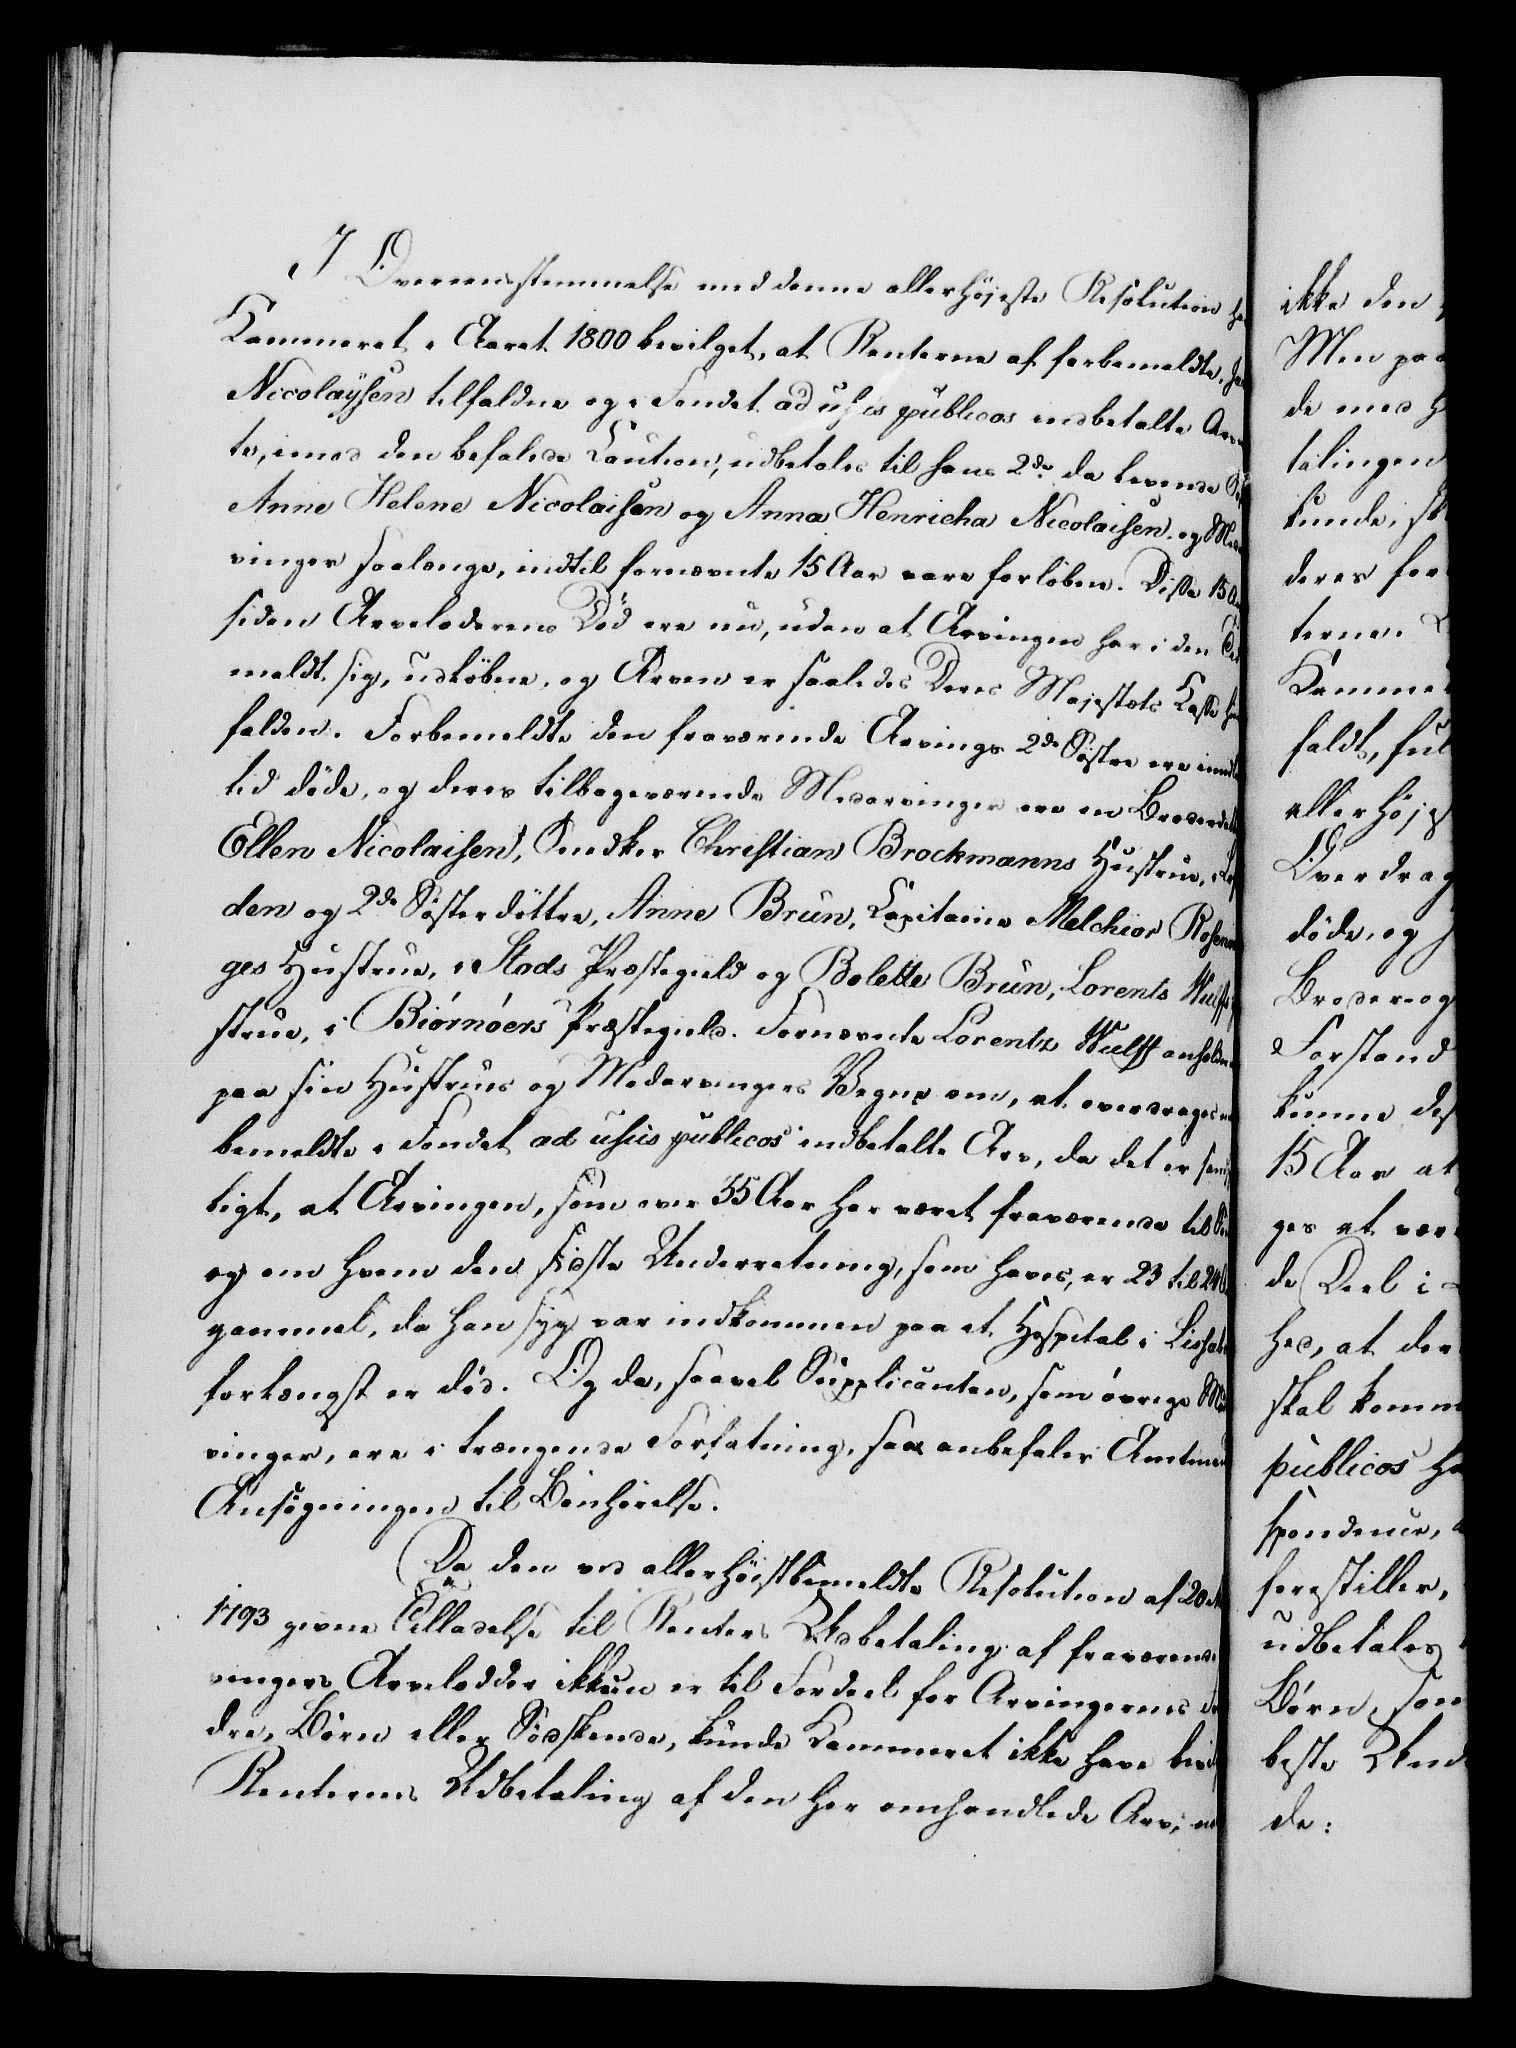 I Overeensstemmelse med denne allerhöjeste Resolution ha
Kammeret i Aaret 1800 bevilget, at Renterne af forbemeldte
Nicolaÿsen tilfaldne og i Fondet ad usus publicos indbetalte Arv
te, imod den befalede Caution, udbetales til hans 2de da levende
Anne Helene Nicolaisen og Anna Henricha Nicolaisen og Med
vinger saalænge, indtil fornævnte 15 Aar vare forløbne. Disse 15
siden Arveladerens Död ere nu, uden at Arvingen har i den Tid
meldt sig, udløbne, og Arven er saaledes Deres Majestæts Kasse
falden. Forbemeldte den fraværende Arvings 2de Søstre ere imidler
tid døde, og deres tilbageværende Medarvinger ere en Broderdatter
Ellen Nicolaisen, Snedker Christian Brockmanns Hustrue,
den og 2de Søsterdöttre, Anne Brun, Capitaine Melchior Rosen
ges Hustrue, i Stods Præstegield og Bolette Brun, Lorents Wulffs
strue, i Biørnøers Præstegield. Fornævnte Lorentz Wulff anholder
paa sin Hustrues og Medarvingers Vegne om, at overdrages
bemeldte i Fondet ad usus publicos indbetalte Arv, da det er
ligt, at Arvingen, som over 35 Aar har været fraværende til
og om hvem den sidste Underretning, som haves, er 23 til 24
gammel, da han syg var indkommen paa et Hospital i Lissabon
forlængst er død. Og da, saavel Supplicanten, som øvrige Med
vinger, ere i trængende Forfatning, saa anbefaler Amtmand
Ansøgningen til Bönhørelse.
Da den ved allerhöistbemeldte Resolution af 20
1793 givne Tilladelse til Renters Udbetaling af fraværende
vingers Arvelodder ikkun er til Fordeel for Arvingernes
dre, Börn eller Södskende, kunde Kammeret ikke have
Renternes Udbetaling af den her omhandlede Arv,
ikke den
Men paa
de med
talingen
kunde,
deres for
terne.
Kammer
faldt,
allerhöj
Overdrag
døde, og
Broder- og
Forstand
kunne
15 Aar at
ges at være
de Deel i
hed, at den
skal komm
publicos
spondence,
forestiller,
udbetales
Børn, som
beste
de: